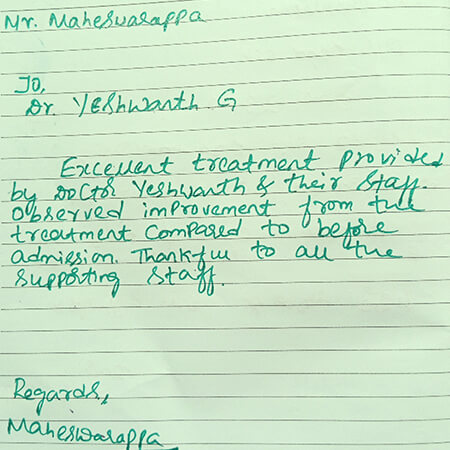 Mr. Maheswarappa
To,
Dr. Yeshwanth G
Excellent treatment provided
by Doctor Yeshwanth & their staff.
Observed improvement from the
treatment compared to before
admission. Thankful to all the
supporting staff.
Regards,
Maheswarappa